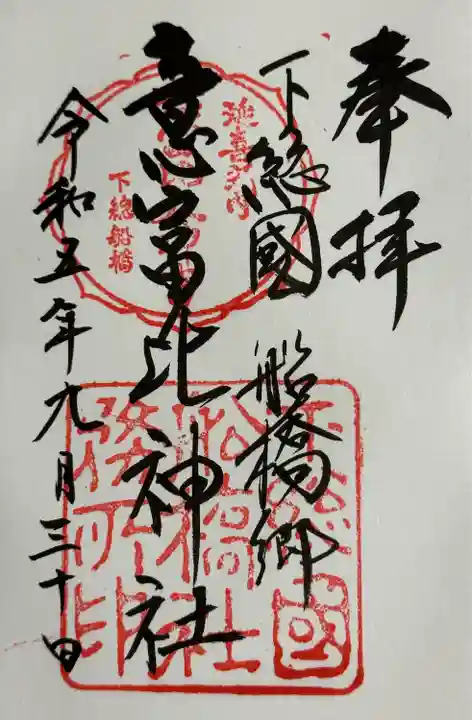 奉拝
下総國 船橋郷
意富比神社
令和五年九月三十日
延喜式内
下總船橋